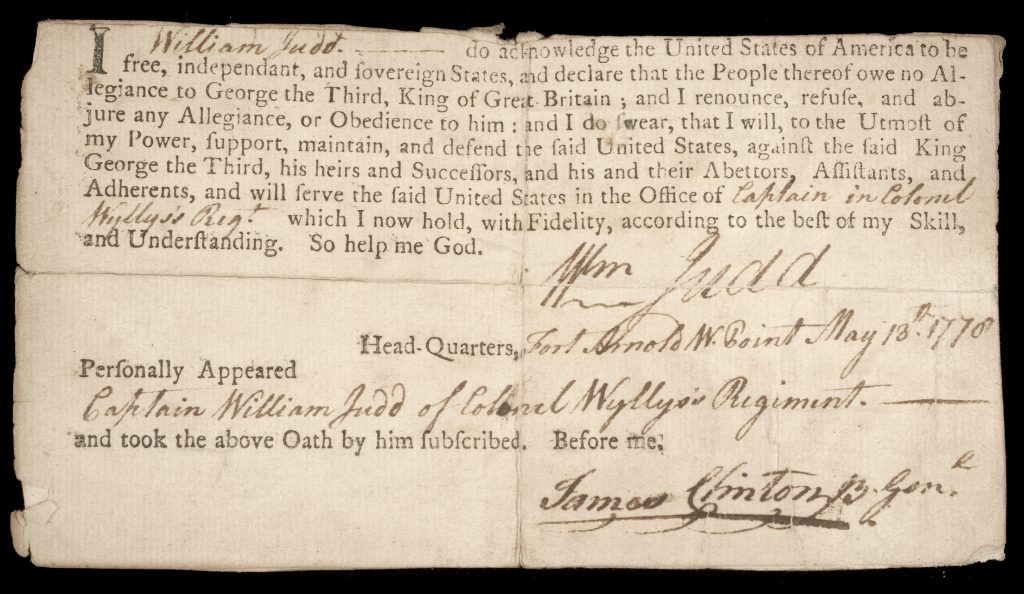 I William Judd. do acknowledge the United States of America to be
free, independant, and ſovereign States, and declare that the People thereof owe no Al-
legiance to George the Third, King of Great-Britain ; and I renounce, refuſe, and ab-
jure any Allegiance, or Obedience to him : and I do ſwear, that I will, to the Utmoſt of
my Power, ſupport, maintain, and defend the ſaid United States, againſt the ſaid King
George the Third, his heirs and Succeſſors, and his and their Abettors, Aſſiſtants, and
Adherents, and will ſerve the ſaid United States in the Office of Captain in Colonel
Wyllys's Regt. which I now hold, with Fidelity, according to the beſt of my Skill,
and Underſtanding. So help me God.
Wm Judd
Head-Quarters, Fort Arnold W. Point May 13th. 1778
Perſonally Appeared
Captain William Judd of Colonel Wyllys's Regiment.
and took the above Oath by him ſubſcribed. Before me,
James Clinton, B. Genl.